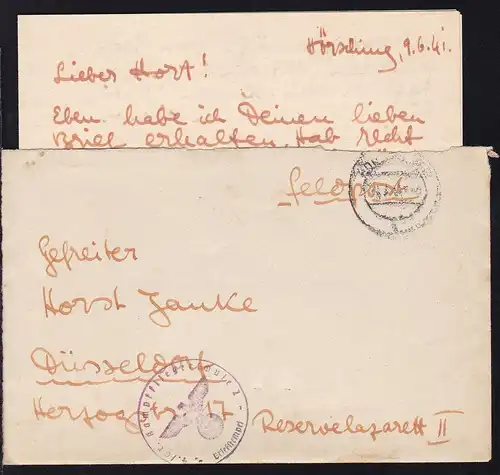 Hörsching, 9.6.41.
Lieber Horst!
Eben habe ich Deinen lieben
Brief erhalten. Hab recht
Feldpost
Gefreiter
Horst Janke
Düsseldorf
Herzogstr. 17
Reservelazarett II
Briefstempel